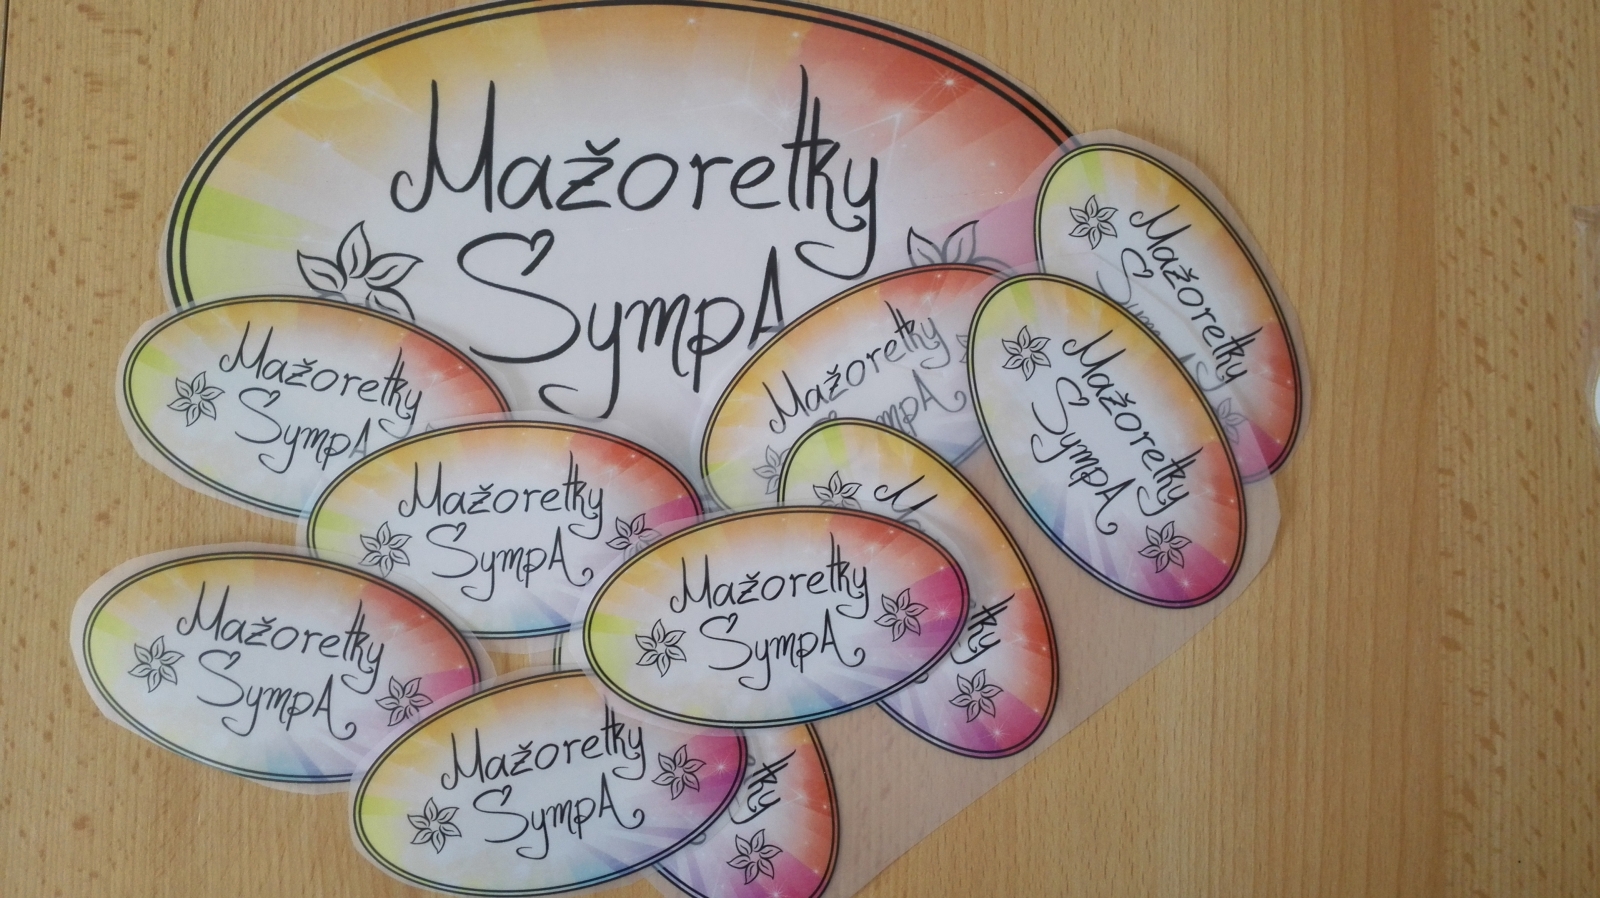 Mažoretky
SympA
Mažoretky
SympA
Mažoretky
SympA
Mažoretky
SympA
Mažoretky
SympA
Mažoretky
SympA
Mažoretky
SympA
Mažoretky
SympA
Mažoretky
SympA